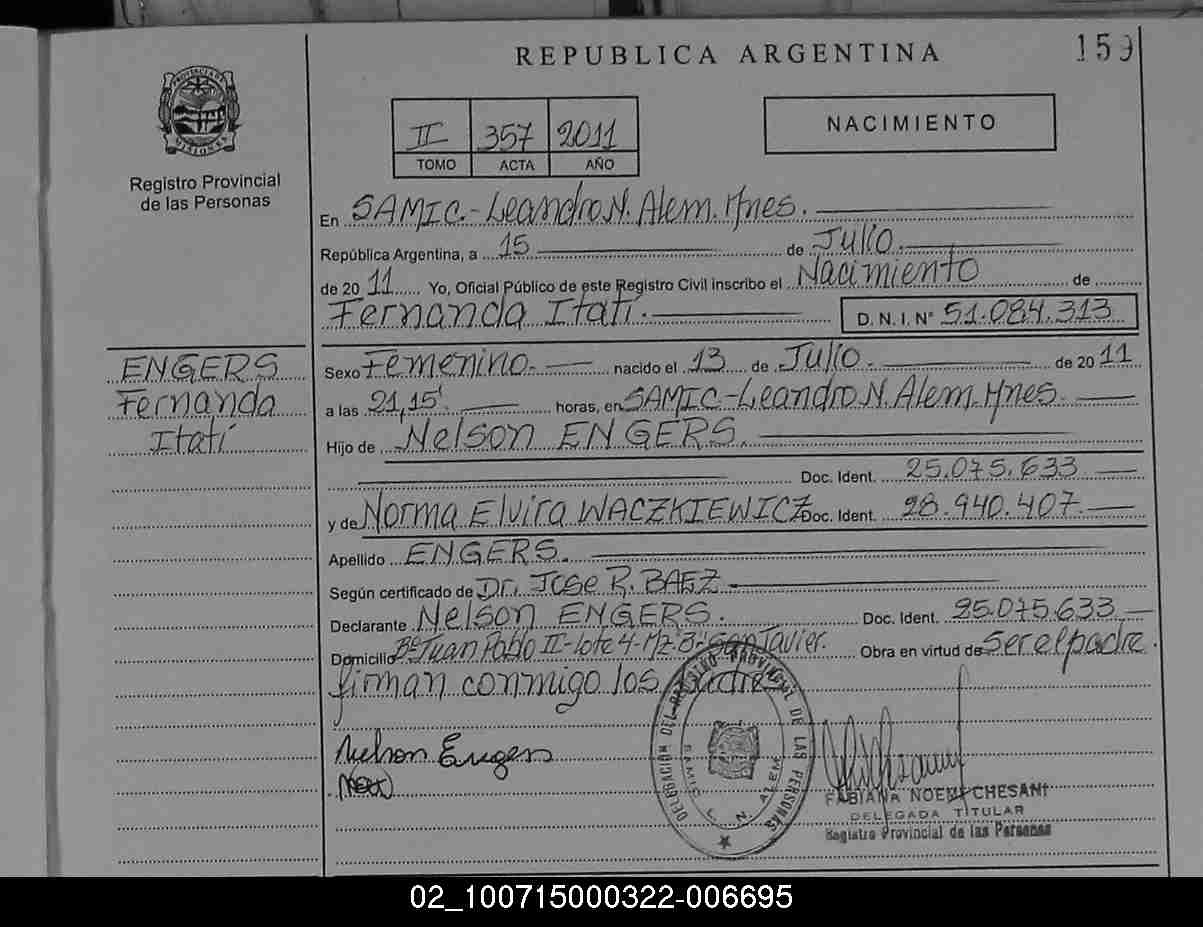 REPUBLICA ARGENTINA
159
PROVINCIA DE MISIONES
Registro Provincial
de las Personas
II 357 2011
TOMO ACTA AÑO
NACIMIENTO
En SAMIC.-Leandro N. Alem. Mnes.
República Argentina, a 15 de Julio.
de 2011 Yo, Oficial Público de este Registro Civil inscribo el Nacimiento de
Fernanda Itatí. D.N.I. Nº 51.084.313
ENGERS
Fernanda
Itatí
Sexo Femenino. nacido el 13 de Julio. de 2011
a las 21,15' horas, en SAMIC-Leandro N. Alem. Mnes.
Hijo de Nelson ENGERS.
Doc. Ident. 25.075.633
y de Norma Elvira WACZKIEWICZ Doc. Ident. 28.940.407.
Apellido ENGERS.
Según certificado de Dr. Jose R. BAEZ
Declarante Nelson ENGERS. Doc. Ident. 25.075.633
Domicilio Bº Juan Pablo II-lote 4-Mz-3- San Javier. Obra en virtud de ser el padre.
firman conmigo los padre
Nelson Engers
DELEGACION DEL REGISTRO PROVINCIAL DE LAS PERSONAS
SAMIC L. N. ALEM
FABIANA NOEMI CHESANI
DELEGADA TITULAR
Registro Provincial de las Personas
02_100715000322-006695